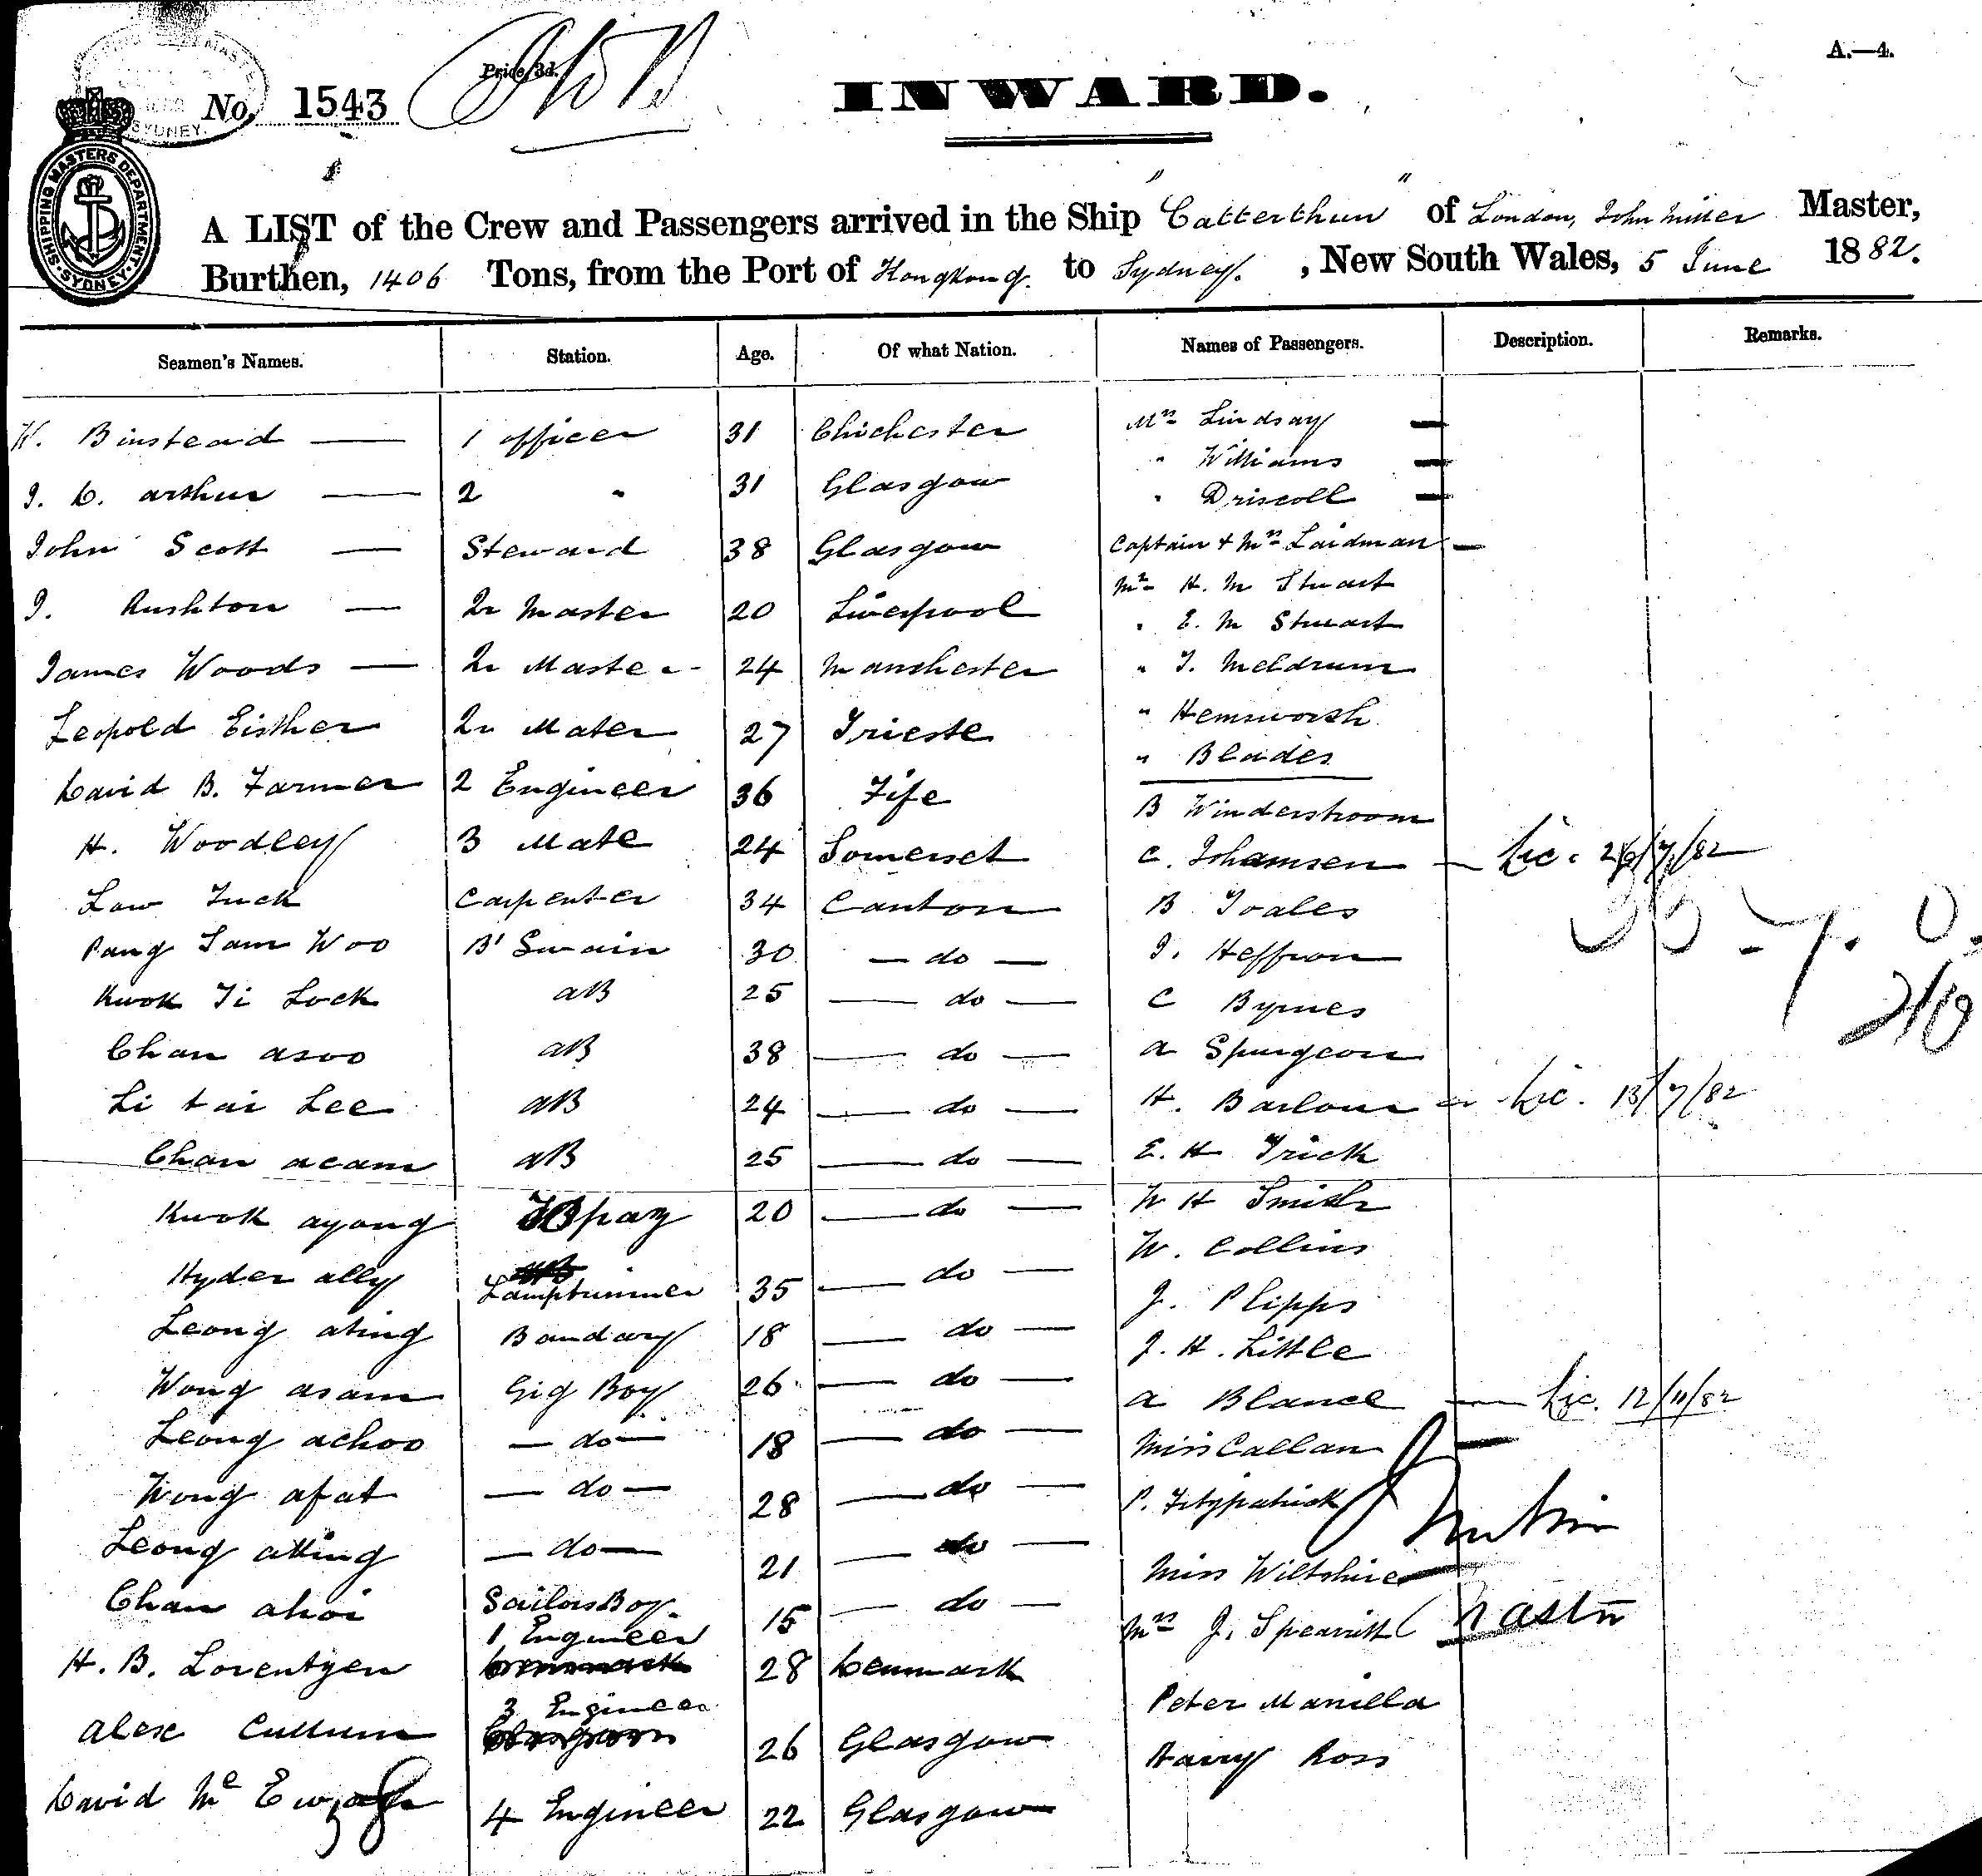 A.—4.
No. 1543
Price 3d.
INWARD.
SHIPPING MASTERS DEPARTMENT. SYDNEY.
A LIST of the Crew and Passengers arrived in the Ship "Catterthun" of London, John Miller Master,
Burthen, 1406 Tons, from the Port of Hongkong. to Sydney. , New South Wales, 5 June 1882.
Seamen's Names. Station. Age. Of what Nation. Names of Passengers. Description. Remarks.
W. Binstead — 1 officer 31 Chichester Mrs Lindsay —
" Williams —
J. D. Arthur — 2 " 31 Glasgow " Driscoll —
John Scott — Steward 38 Glasgow Captain & Mrs Laidman —
Mr H. M Stuart
J. Rushton — Qr Master 20 Liverpool " E. M Stuart
James Woods — Qr Master 24 Manchester " J. Meldrum
Leopold Eisther Qr Mater 27 Trieste " Hemsworth
" Blades
David B. Farmer 2 Engineer 36 Fife B Winderstroom
H. Woodley 3 Mate 24 Somerset C. Johamsen — Lic. 26/7/82
Law Tuck Carpenter 34 Canton B Toales
Pang Sam Woo B' Swain 30 — do — J. Heffron
Kwok Ti Lock AB 25 — do — C Byrnes
Chan asoo AB 38 — do — A Spurgeon
Li tai Lee AB 24 — do — H. Barlow — Lic. 13/7/82
Chan acam AB 25 — do — E. H Trick
Kwok ayong Topaz 20 — do — W H Smith
W. Collins
Hyder ally Lamptrimmer 35 — do — J. Plipps
Leong ating Bandary 18 — do — J. H. Little
Wong asam Gig Boy 26 — do — A Blance — Lic. 12/11/82
Leong achoo — do — 18 — do — Miss Callan —
Wong afat — do — 28 — do — P. Fitzpatrick
Leong atting — do — 21 — do — Miss Wiltshire —
Chan ahoi Sailors Boy. 15 — do — Mrs J. Spearritt
H. B. Lorentzen 1 Engineer 28 Denmark Peter Manilla
Alex Cullum 3 Engineer 26 Glasgow Harry Ross
David Mc Ewan 4 Engineer 22 Glasgow